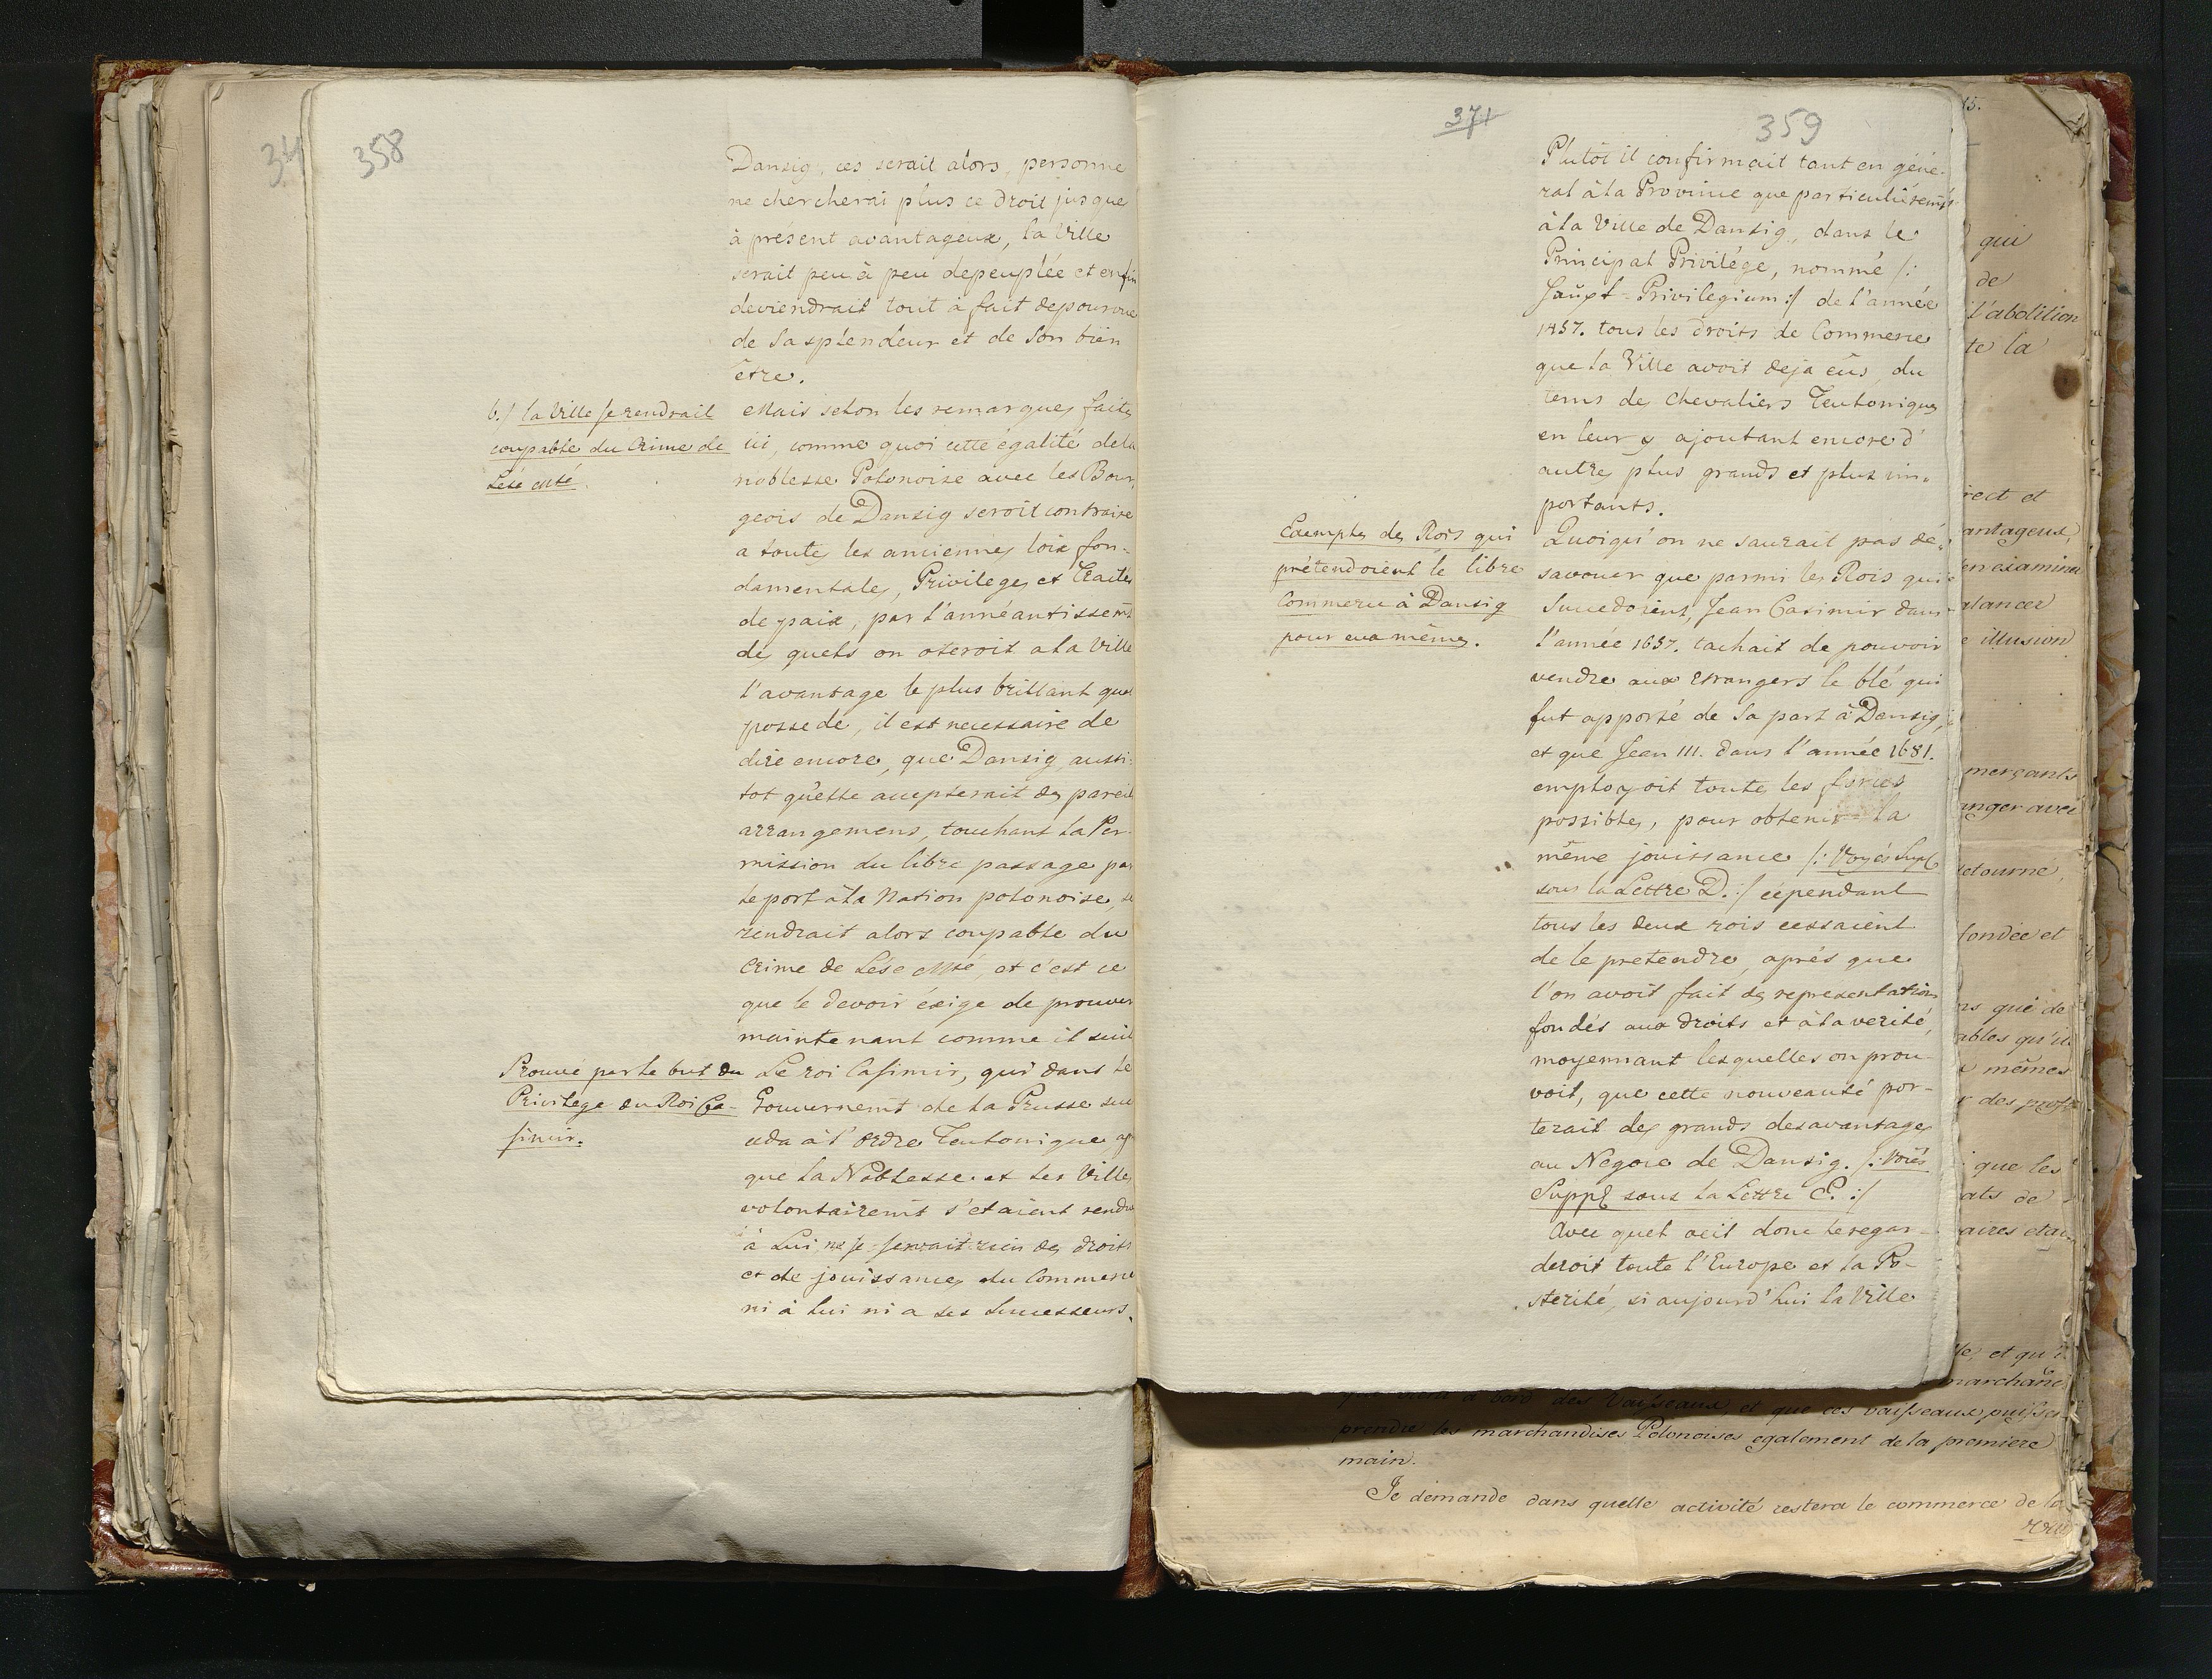 34
358
Dansig, ces serait alors, personne
ne chercherai plus ce droit jusque
à present avantageux, la Ville
serait peu à peu depeuplée et enfin
deviendrait tout à fait depourvue
de sa splendeur et de son bien
être.
b./ la Ville se rendrait
coupable du Crime de
Lése Mté.
Mais selon les remarques faites
ici, comme quoi cette égalité de la
noblesse Polonoise avec les Bour,
geois de Dansig seroit contraire
a toutes les anciennes loix fon-
damentales, Privileges et Traités
de paix, par l'annéantissemt
des quels on oteroit a la Ville
l'avantage le plus brillant quel
possede, il est necessaire de
dire encore, que Dansig, aussi-
tot qu'elle accepterait des pareil
arrangemens, touchant la Per-
mission du libre passage par
le port à la Nation polonoise, se
rendrait alors coupable du
Crime de Lése Mté, et c'est ce
que le devoir éxige de prouver
maintenant comme il suit
Prouvé par le but du
Privilege du Roi Ca-
simir.
Le roi Casimir, qui dans le
Gouvernemt de la Prusse suc
ceda à l'ordre Teutonique, ap
que la Noblesse et les Villes
volontairemt s'etaient rendu
à Lui, ne se servait rien des droits
et de jouissances du Commerce
ni à lui ni a ses Successeurs.
371
359
Plutôt il confirmait tant en géné-
ral à la Province que particuliéremt
à la Ville de Dansig, dans le
Principal Privilége, nommé /:
Haupt-Privilegium :/ de l'année
1457. tous les droits de Commerce
que la Ville avoit deja eûs, du
tems des Chevaliers Teutoniques
en leur y ajoutant encore d'
autres plus grands et plus im-
portants.
Exemples des Rois qui
prétendoient le libre
Commerce à Dansig
pour eux mêmes.
Quoiqu'on ne saurait pas dé-
savouer que parmi les Rois qui
Succedoient, Jean Casimir dans
l'année 1657. tachait de pouvoir
vendre aux étrangers le blé qui
fut apporté de sa part à Dansig,
et que Jean III. dans l'année 1681.
employoit toutes les forces
possibles, pour obtenir la
même jouissance /: Voyés Supl
sous la Lettre D. :/ cependant
tous les deux rois cessaient
de le pretendre, aprés que
l'on avoit fait des representations
fondés aux droits et à la verité,
moyennant lesquelles on prou-
voit, que cette nouveauté por-
terait des grands desavantages
au Negoce de Dansig. /: Voiés
Suppl sous la Lettre E. :/
Avec quel oeil donc le regar-
deroit toute l'Europe et la Po-
sterité, si aujourd'hui la Ville
15.
qui
de
l'abolition
te la
rect et
antageux,
en examiner
alancer
e illusion
merçants
anger avec
letourné,
fondée et
ns que de
ables qu'il
mêmes
des prof
que les
ats de
aires etau
le, et qu'i
marchand
des Vaisseaux, et que ces vaisseaux puisse
prendre les marchandises Polonoises egalement de la premiere
main.
Je demande dans quelle activité restera le commerce de la